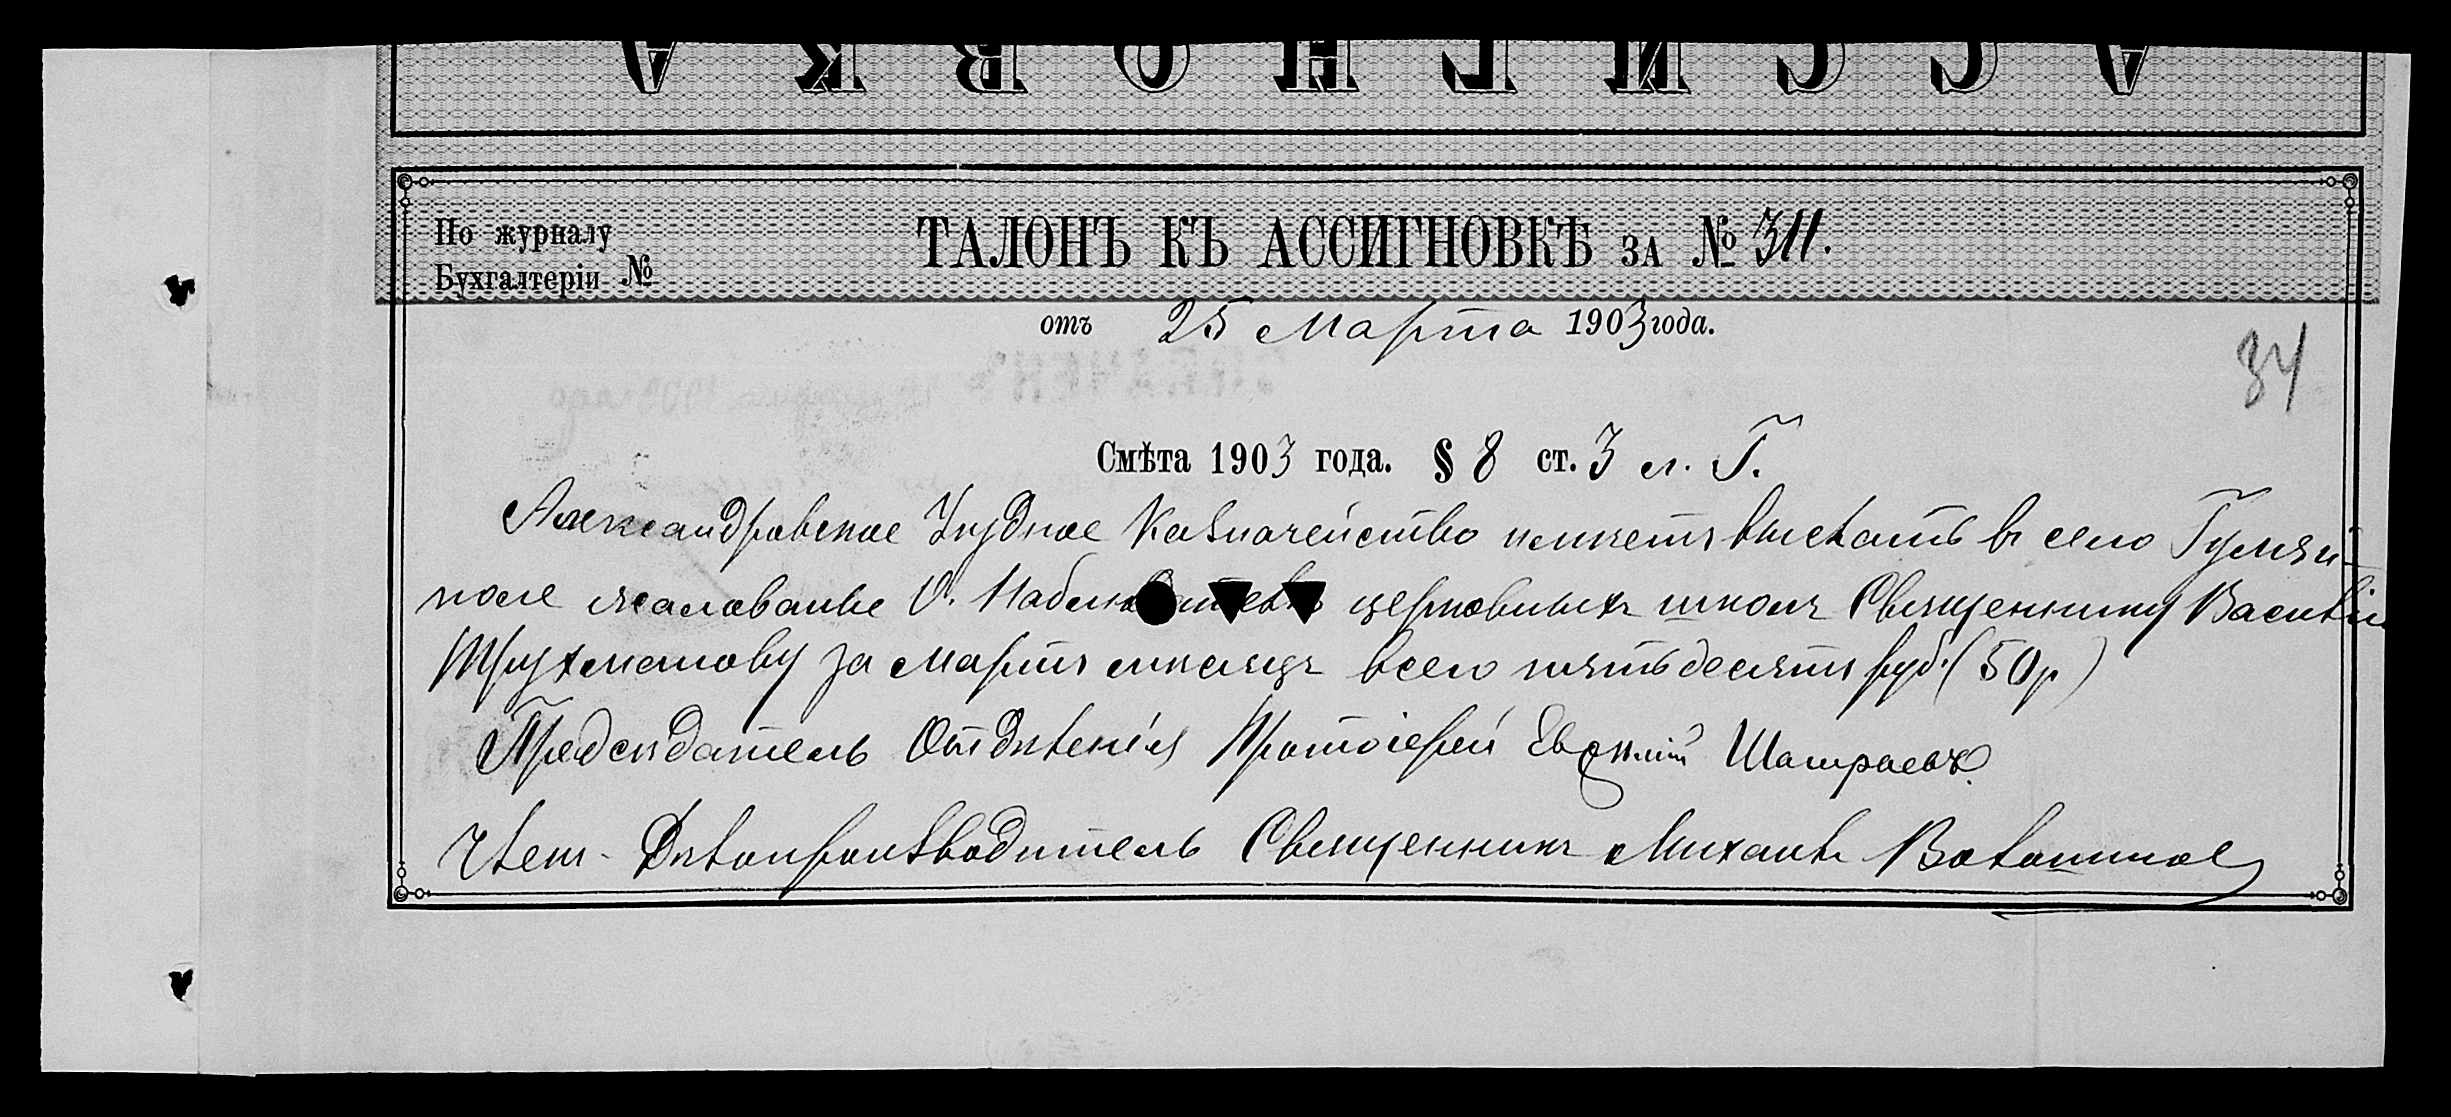 АССИГНОВКА
По журналу
Бухгалтеріи №
ТАЛОНЪ КЪ АССИГНОВКѢ ЗА № 311.
отъ 25 Марта 1903 года.
34
Смѣта 1903 года. § 8 ст. 3 л. Г.
Александровское Уѣздное Казначейство имѣетъ выслать въ село Гуляй-
поле жалованье О. Наблюдателю церковныхъ школъ Священнику Василію
за Мартъ мѣсяцъ всего пятьдесятъ руб. (50 р)
Предсѣдатель Отдѣленія Протоіерей
Членъ-Дѣлопроизводитель Священникъ Михаилъ